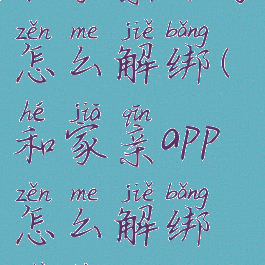 zěn me jiě bǎng
怎么解绑(
hé jiā qīn
和家亲app
zěn me jiě bǎng
怎么解绑